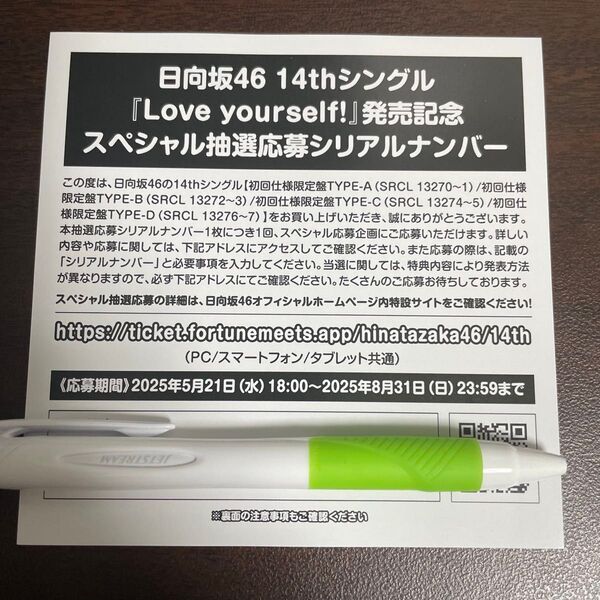 日向坂46 14thシングル
『Love yourself!』発売記念
スペシャル抽選応募シリアルナンバー
この度は、日向坂46の14thシングル【初回仕様限定盤TYPE-A（SRCL 13270～1）/初回仕様
限定盤TYPE-B（SRCL 13272～3）/初回仕様限定盤TYPE-C（SRCL 13274～5）/初回仕様
限定盤TYPE-D（SRCL 13276～7）】をお買い上げいただき、誠にありがとうございます。
本抽選応募シリアルナンバー1枚につき1回、スペシャル応募企画にご応募いただけます。詳しい
内容や応募に関しては、下記アドレスにアクセスしてご確認ください。また応募の際は、記載の
「シリアルナンバー」と必要事項を入力してください。当選に関しては、特典内容により発表方法
が異なりますので、必ず下記アドレスにてご確認ください。たくさんのご応募お待ちしております。
スペシャル抽選応募の詳細は、日向坂46オフィシャルホームページ内特設サイトをご確認ください!
https://ticket.fortunemeets.app/hinatazaka46/14th
（PC/スマートフォン/タブレット共通）
《応募期間》2025年5月21日（水）18:00～2025年8月31日（日）23:59まで
JETSTREAM
※裏面の注意事項もご確認ください